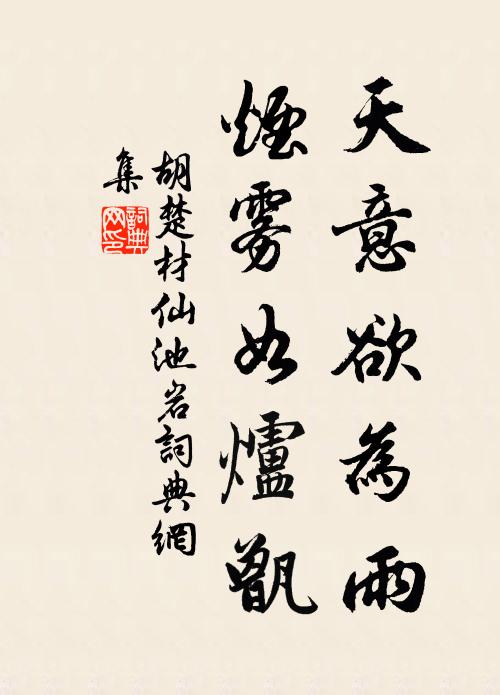 天意欲為雨
煙雾如爐甑
胡楚材仙池岩詞典網
集
詞典
网印